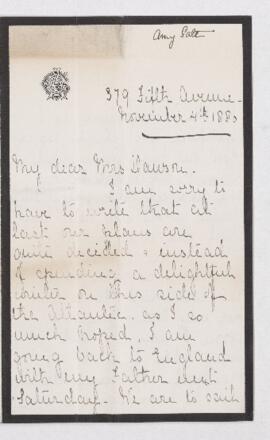 Amy Salt
379 Fifth Avenue -
November 4th 1880
My dear Mrs Dawson.
I am sorry to
have to write that at
last our plans are
quite decided & instead
of spending a delightful
winter on this side of
the Atlantic, as I so
much hoped, I am
going back to England
with my Father next
Saturday - We are to sail